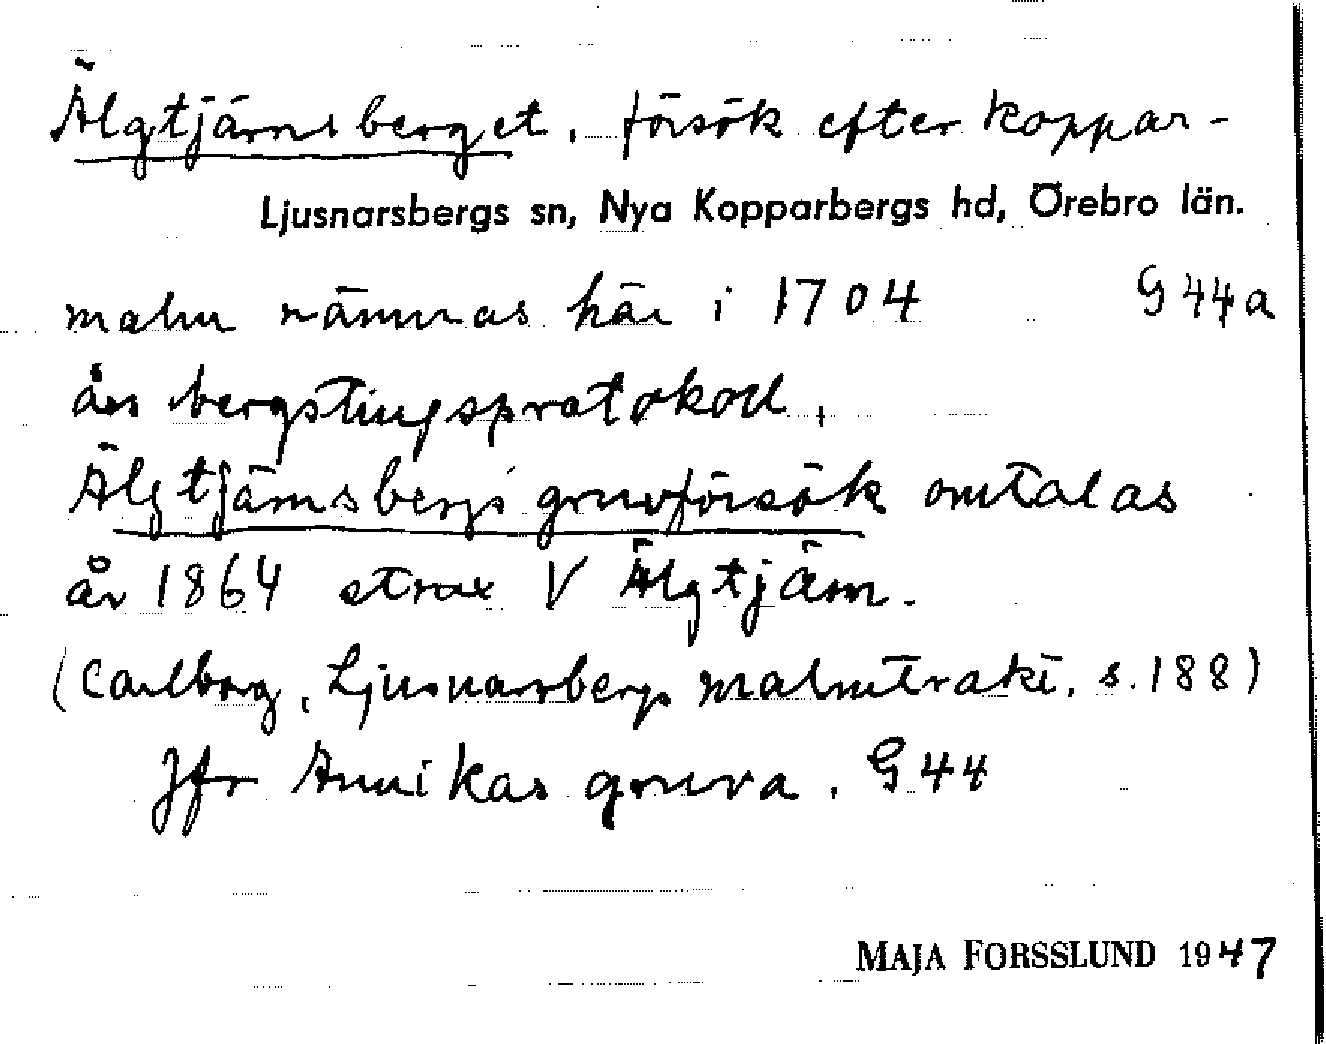 Älgtjärnsberget, försök efter koppar-
Ljusnarsbergs sn, Nya Kopparbergs hd, Örebro län.
malm nämnas här i 1704 G 44a
års bergstingsprotokoll.
Älgtjärnsbergs gruvförsök omtalas
år 1864 strax V Älgtjärn.
(Carlborg, Ljusnarsbergs malmtrakt, s. 188)
Jfr Annikas gruva, G 44
MAJA FORSSLUND 1947